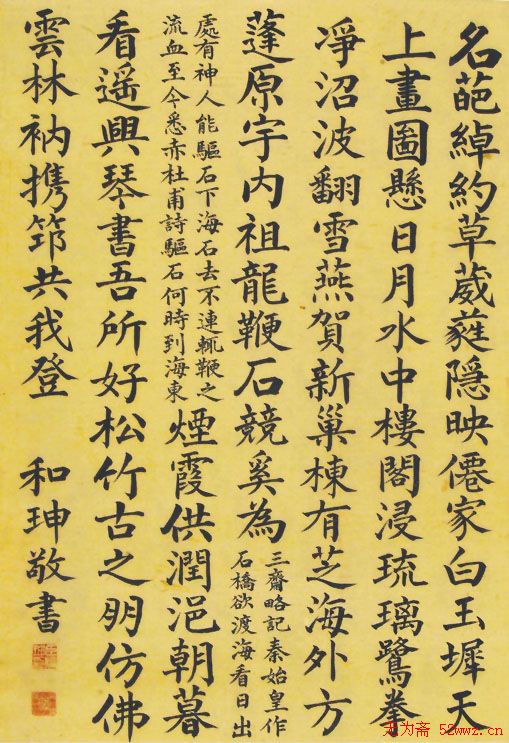 名葩綽約草葳蕤隱映僊家白玉墀天
上畫圖懸日月水中樓閣浸琉璃鷺拳
凈沼波翻雪燕賀新巢棟有芝海外方
蓬原宇内祖龍鞭石競奚為
三齋略記秦始皇作
石橋欲渡海看日出
處有神人能驅石下海石去不連輒鞭之
流血至今悉赤杜甫詩驅石何時到海東
煙霞供潤浥朝暮
看遙興琴書吾所好松竹古之朋仿佛
雲林衲携筇共我登 和珅敬書
无为斋 52wwz.cn